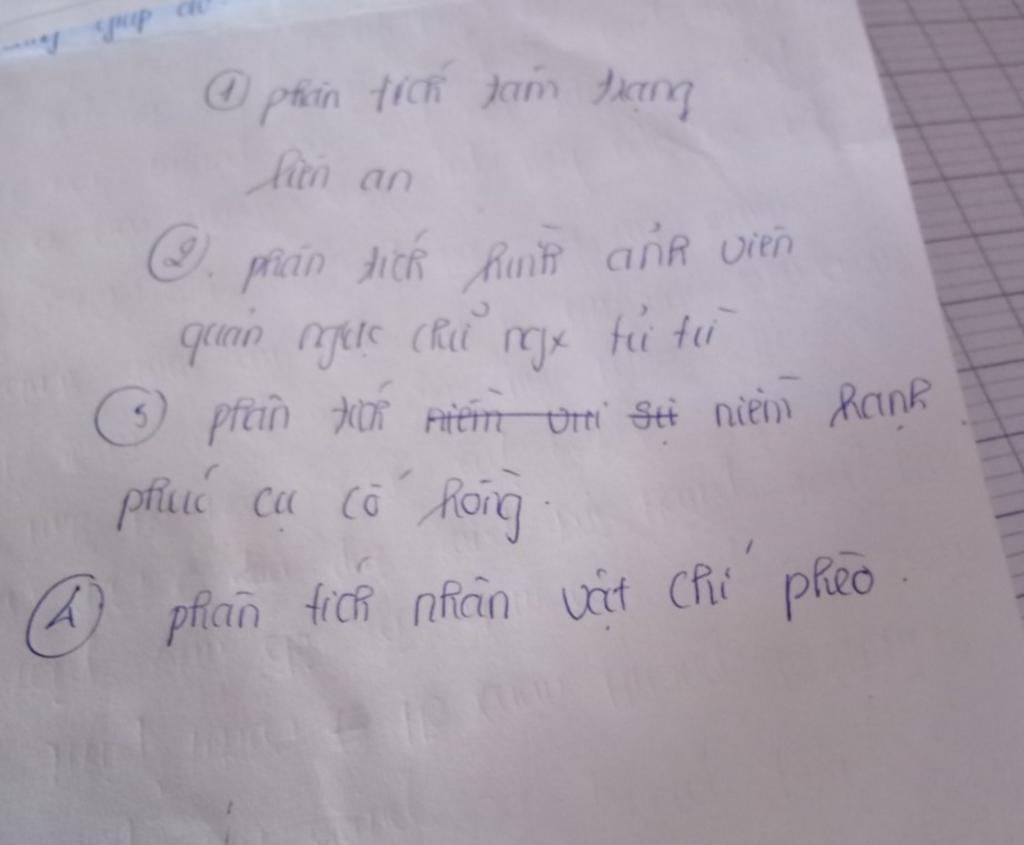 ① phân tích tâm trạng
liên an
②. phân tích hình ảnh viên
quản ngục chữ ngx tử tù
③ phân tích niềm vui sự niềm hạnh
phúc cụ cố hồng.
④ phân tích nhân vật chí phèo.